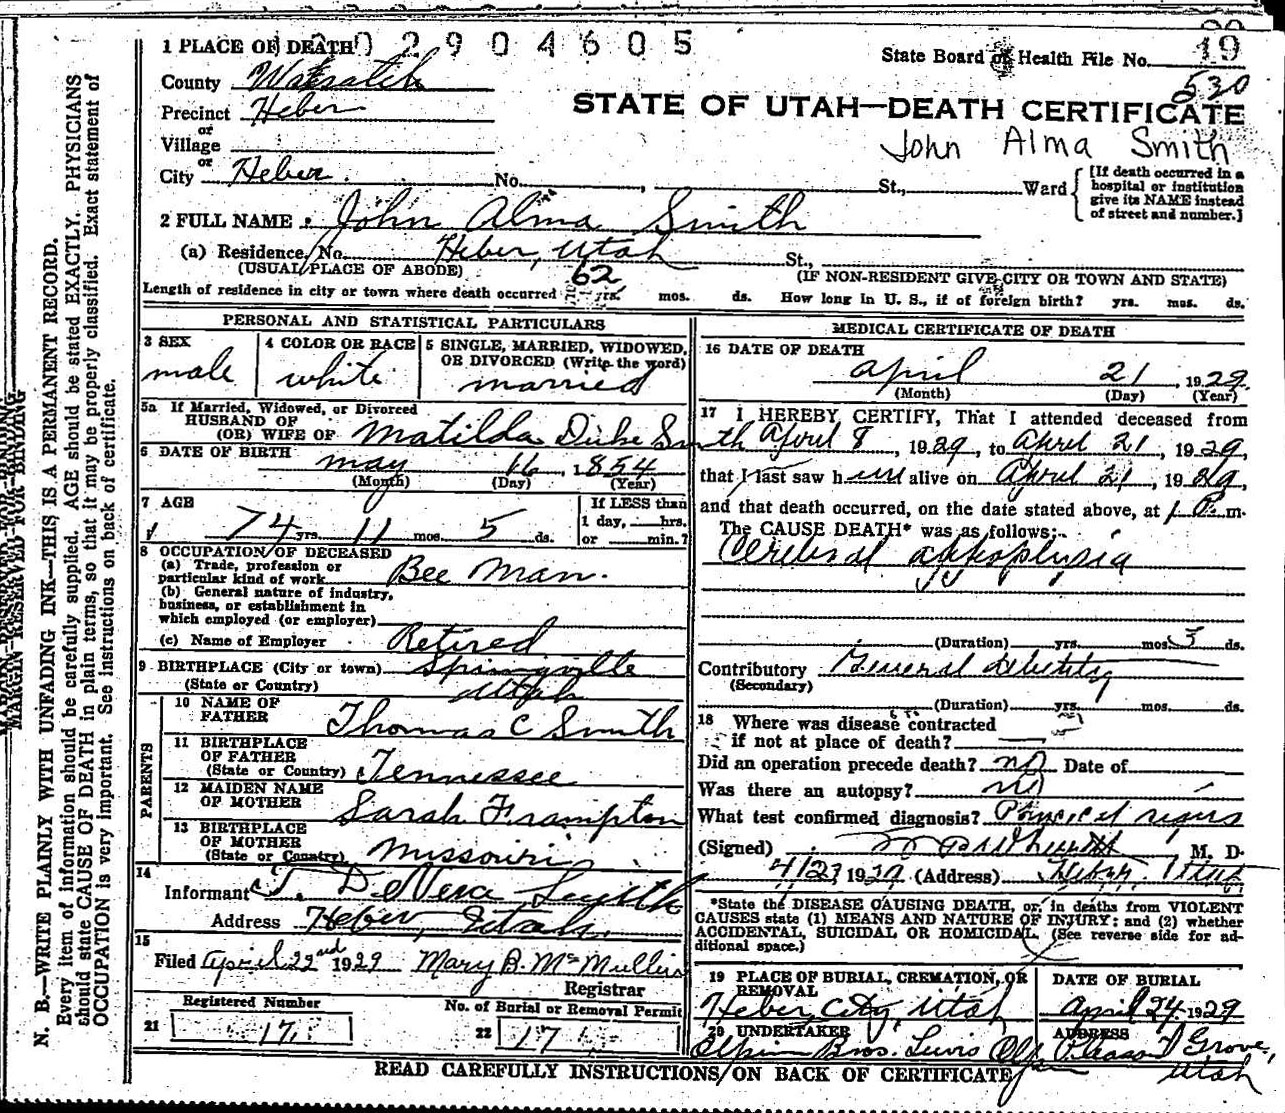 2 0 2 9 0 4 6 0 5
1 PLACE OF DEATH
State Board of Health File No. 19
530
County Wasatch
Precinct Heber
STATE OF UTAH—DEATH CERTIFICATE
or
Village
John Alma Smith
or
City Heber. No. , St., Ward
[If death occurred in a
hospital or institution
give its NAME instead
of street and number.]
2 FULL NAME John Alma Smith
(a) Residence, No. Heber, Utah St.,
(USUAL PLACE OF ABODE) (IF NON-RESIDENT GIVE CITY OR TOWN AND STATE)
Length of residence in city or town where death occurred 62 yrs. mos. ds. How long in U. S., if of foreign birth? yrs. mos. ds.
PERSONAL AND STATISTICAL PARTICULARS
3 SEX
male
4 COLOR OR RACE
white
5 SINGLE, MARRIED, WIDOWED,
OR DIVORCED (Write the word)
married
5a If Married, Widowed, or Divorced
HUSBAND OF
(OR) WIFE OF Matilda Duke Smith
6 DATE OF BIRTH
may 16, 1854
(Month) (Day) (Year)
7 AGE
74 yrs. 11 mos. 5 ds.
If LESS than
1 day, hrs.
or min.?
8 OCCUPATION OF DECEASED
(a) Trade, profession or
particular kind of work Bee Man.
(b) General nature of industry,
business, or establishment in
which employed (or employer)
(c) Name of Employer Retired
9 BIRTHPLACE (City or town) Springville
(State or Country) Utah
PARENTS
10 NAME OF
FATHER Thomas C Smith
11 BIRTHPLACE
OF FATHER
(State or Country) Tennessee
12 MAIDEN NAME
OF MOTHER Sarah Frampton
13 BIRTHPLACE
OF MOTHER
(State or Country) Missouri
14
Informant J. DeVera Smith
Address Heber, Utah.
15
Filed April 22nd 1929 Mary B. McMullin
Registrar
Registered Number
21 17
No. of Burial or Removal Permit
22 17
MEDICAL CERTIFICATE OF DEATH
16 DATE OF DEATH
April 21, 1929
(Month) (Day) (Year)
17 I HEREBY CERTIFY, That I attended deceased from
April 8, 1929, to April 21, 1929,
that I last saw h alive on April 21, 1929,
and that death occurred, on the date stated above, at 1 P. m.
The CAUSE DEATH* was as follows:
Cerebral
(Duration) yrs. mos. 5 ds.
Contributory General debility
(Secondary)
(Duration) yrs. mos. ds.
18 Where was disease contracted
if not at place of death?
Did an operation precede death? no Date of
Was there an autopsy? no
What test confirmed diagnosis? Physical signs
(Signed) M. D.
4/23 1929 (Address) Heber, Utah
*State the DISEASE CAUSING DEATH, or, in deaths from VIOLENT
CAUSES state (1) MEANS AND NATURE OF INJURY; and (2) whether
ACCIDENTAL, SUICIDAL OR HOMICIDAL. (See reverse side for ad-
ditional space.)
19 PLACE OF BURIAL, CREMATION, OR
REMOVAL
Heber City, Utah
DATE OF BURIAL
April 24 1929
20 UNDERTAKER
Bros. Lewis
ADDRESS
Pleasant Grove,
Utah
READ CAREFULLY INSTRUCTIONS ON BACK OF CERTIFICATE
MARGIN RESERVED FOR BINDING
N. B.—WRITE PLAINLY WITH UNFADING INK—THIS IS A PERMANENT RECORD.
Every item of information should be carefully supplied. AGE should be stated EXACTLY. PHYSICIANS
should state CAUSE OF DEATH in plain terms, so that it may be properly classified. Exact statement of
OCCUPATION is very important. See instructions on back of certificate.